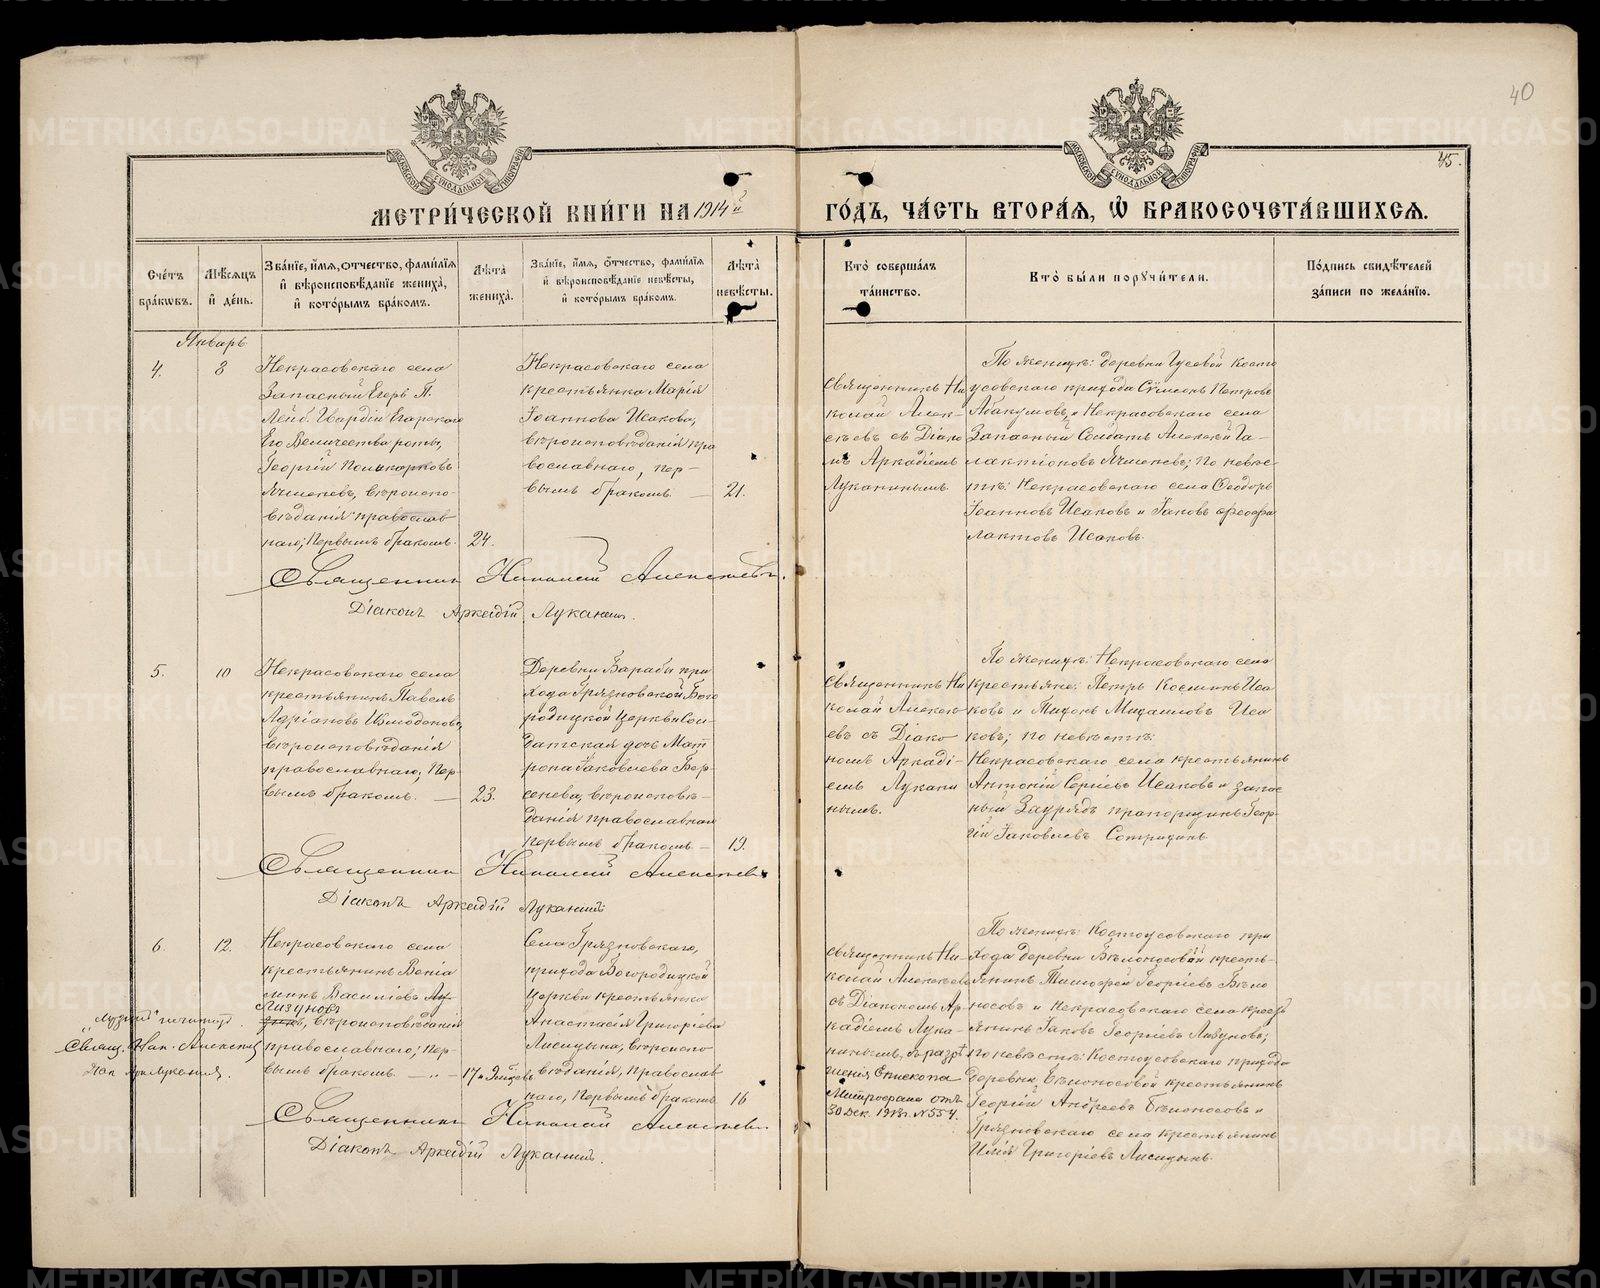 40
45.
МЕТРИ́ЧЕСКОЙ КНИ́ГИ НА 1914 й ГО́ДЪ, ЧА́СТЬ ВТОРА́Я, Ѽ БРАКОСОЧЕТА́ВШИХСЯ.
Сче́тъ бра́ковъ.
Мѣ́сяцъ и̑ де́нь.
Зва́нїе, и҆́мя, ѻ҆́тчество, фами́лїя и҆ вѣроисповѣ́данїе жениха̀, и҆ кото́рымъ бра́комъ.
Лѣ́та жениха̀.
Зва́нїе, и҆́мя, ѻ҆́тчество, фами́лїя и҆ вѣроисповѣ́данїе невѣ́сты, и҆ кото́рымъ бра́комъ.
Лѣ́та невѣ́сты.
Кто̀ соверша́лъ та́инство.
Кто̀ бы́ли порꙋчи́тели.
По́дпись свидѣ́телей за́писи по жела́нїю.
Январь
4.
8
Некрасовскаго села
Запасный Егерь Л.
Лейб. Гвардіи Егарскаго
Его Величества роты,
Георгій Поликарповъ
Ячменевъ, вѣроиспо-
вѣданія православ
наго, первымъ бракомъ.
24.
Некрасовскаго села
крестьянка Марія
Іоаннова Исакова,
вѣроисповѣданія пра
вославнаго, пер-
вымъ бракомъ. —
21.
Священникъ Ни
колай Алек-
сѣевъ съ Діако
мъ Аркадіемъ
Луканинымъ.
По женихѣ: деревни Гусевой Косто
усовскаго прихода Сѷмеонъ Петровъ
Абакумовъ, и Некрасовскаго села
Запасный Солдатъ Алексѣй Га-
лактіоновъ Ячменевъ; по невѣс-
тѣ: Некрасовскаго села Ѳеодоръ
Іоанновъ Исаковъ и Іаковъ Ѳеофи
лактовъ Исаковъ.
Священникъ Николай Алексѣевъ.
Діаконъ Аркадій Луканинъ.
5.
10
Некрасовскаго села
крестьянинъ Павелъ
Адріановъ Измоденовъ,
вѣроисповѣданія
православнаго, пер-
вымъ бракомъ. —
23.
Деревни Барабы при
хода Грязновской Бого
родицкой церкви Сол-
датская дочь Мат
рона Іаковлева Бер-
сенева, вѣроисповѣ-
данія православнаго
первымъ бракомъ —
19.
Священникъ Ни
колай Алексѣ
евъ съ Діако
номъ Аркаді-
емъ Лукани
нымъ.
По женихѣ: Некрасовскаго села
крестьяне: Петръ Косминъ Иса
ковъ и Тихонъ Михаиловъ Иса
ковъ; по невѣстѣ:
Некрасовскаго села крестьянинъ
Антоній Сергіевъ Исаковъ и запас
ный Заурядъ прапорщикъ Геор-
гій Іаковлевъ
Священникъ Николай Алексѣевъ
Діаконъ Аркадій Луканинъ
6.
12.
Некрасовскаго села
крестьянинъ Веніа
минъ Василіевъ Лу-
Лизуновъ
вѣроисповѣданія
православнаго, пер-
вымъ бракомъ — „ —
Свящ. Ник. Алексѣевъ
Діак. Арк. Луканинъ.
Села Грязновскаго,
прихода Богородицкой
церкви крестьянка
Анастасія Григоріева
Лисицына, вѣроиспо
вѣданія, православ
наго, первымъ бракомъ
16
Священникъ Ни-
колай Алексѣевъ
съ Діакономъ Ар-
кадіемъ Лука-
нинымъ, съ разрѣ
шенія Епископа
Митрофана отъ
30 Дек. 1913г. №554.
По женихѣ: Костоусовскаго при
хода деревни Бѣлоносовой кресть-
янинъ Тимофей Георгіевъ Бѣло
носовъ и Некрасовскаго села кресть
янинъ Іаковъ Георгіевъ Лизуновъ;
по невѣстѣ: Костоусовскаго прихода
деревни, Бѣлоносовой крестьянинъ
Георгій Андреевъ Бѣлоносовъ и
Грязновскаго села крестьянинъ
Илія Григоріевъ Лисицынъ.
Священникъ Николай Алексѣевъ.
Діаконъ Аркадій Луканинъ.
METRIKI.GASO-URAL.RU